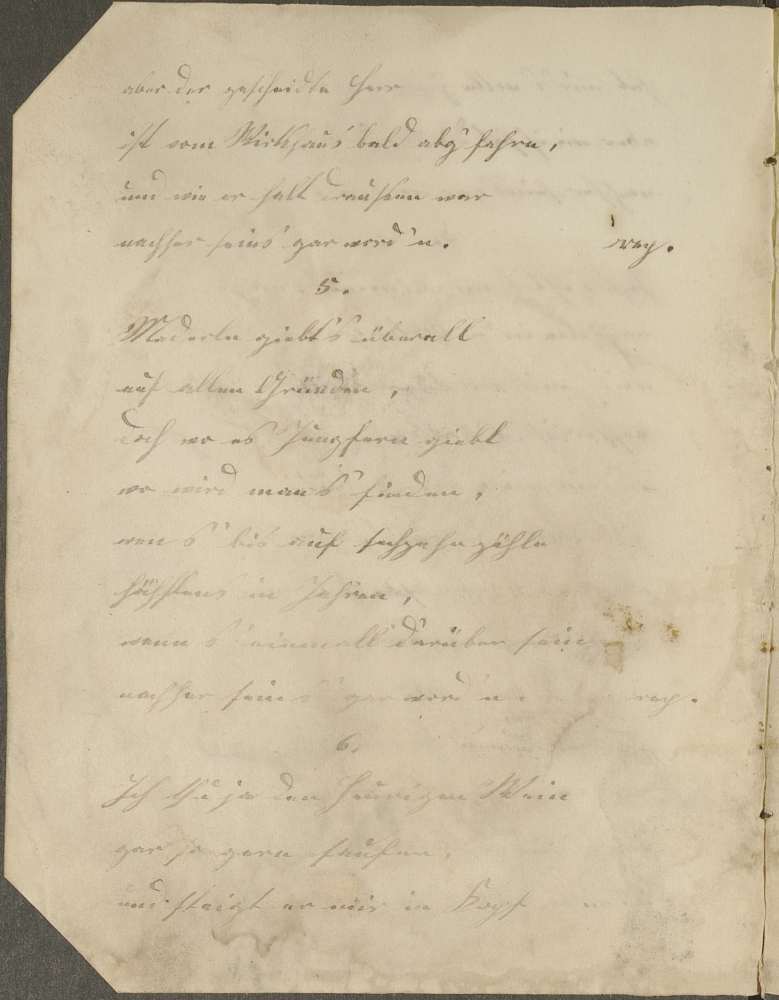 aber der gescheidte Herr
ist vom Wirthaus bald abg'fahrn,
und wie er halt draußen war
nachher seins gar word'n. rep.
5.
Maderln giebt's überall
auf allen Gründen,
doch wo es Jungfern giebt
wo wird man's finden,
wen s' bis auf sechzehn zähln
höchstens in Jahren,
wenn s' einmall darüber sein
nachher sein s' gar word'n rep.
6.
Ich thu ja den heurigen Wein
gar so gern saufen,
und steigt er mir in Kopf